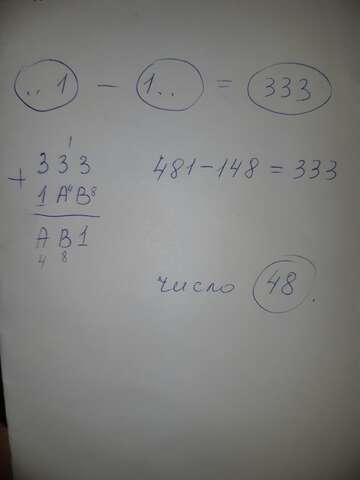 ..1 - 1.. = 333
1
333
481-148 = 333
+
1A⁴B⁸
AB1
4 8
число 48.